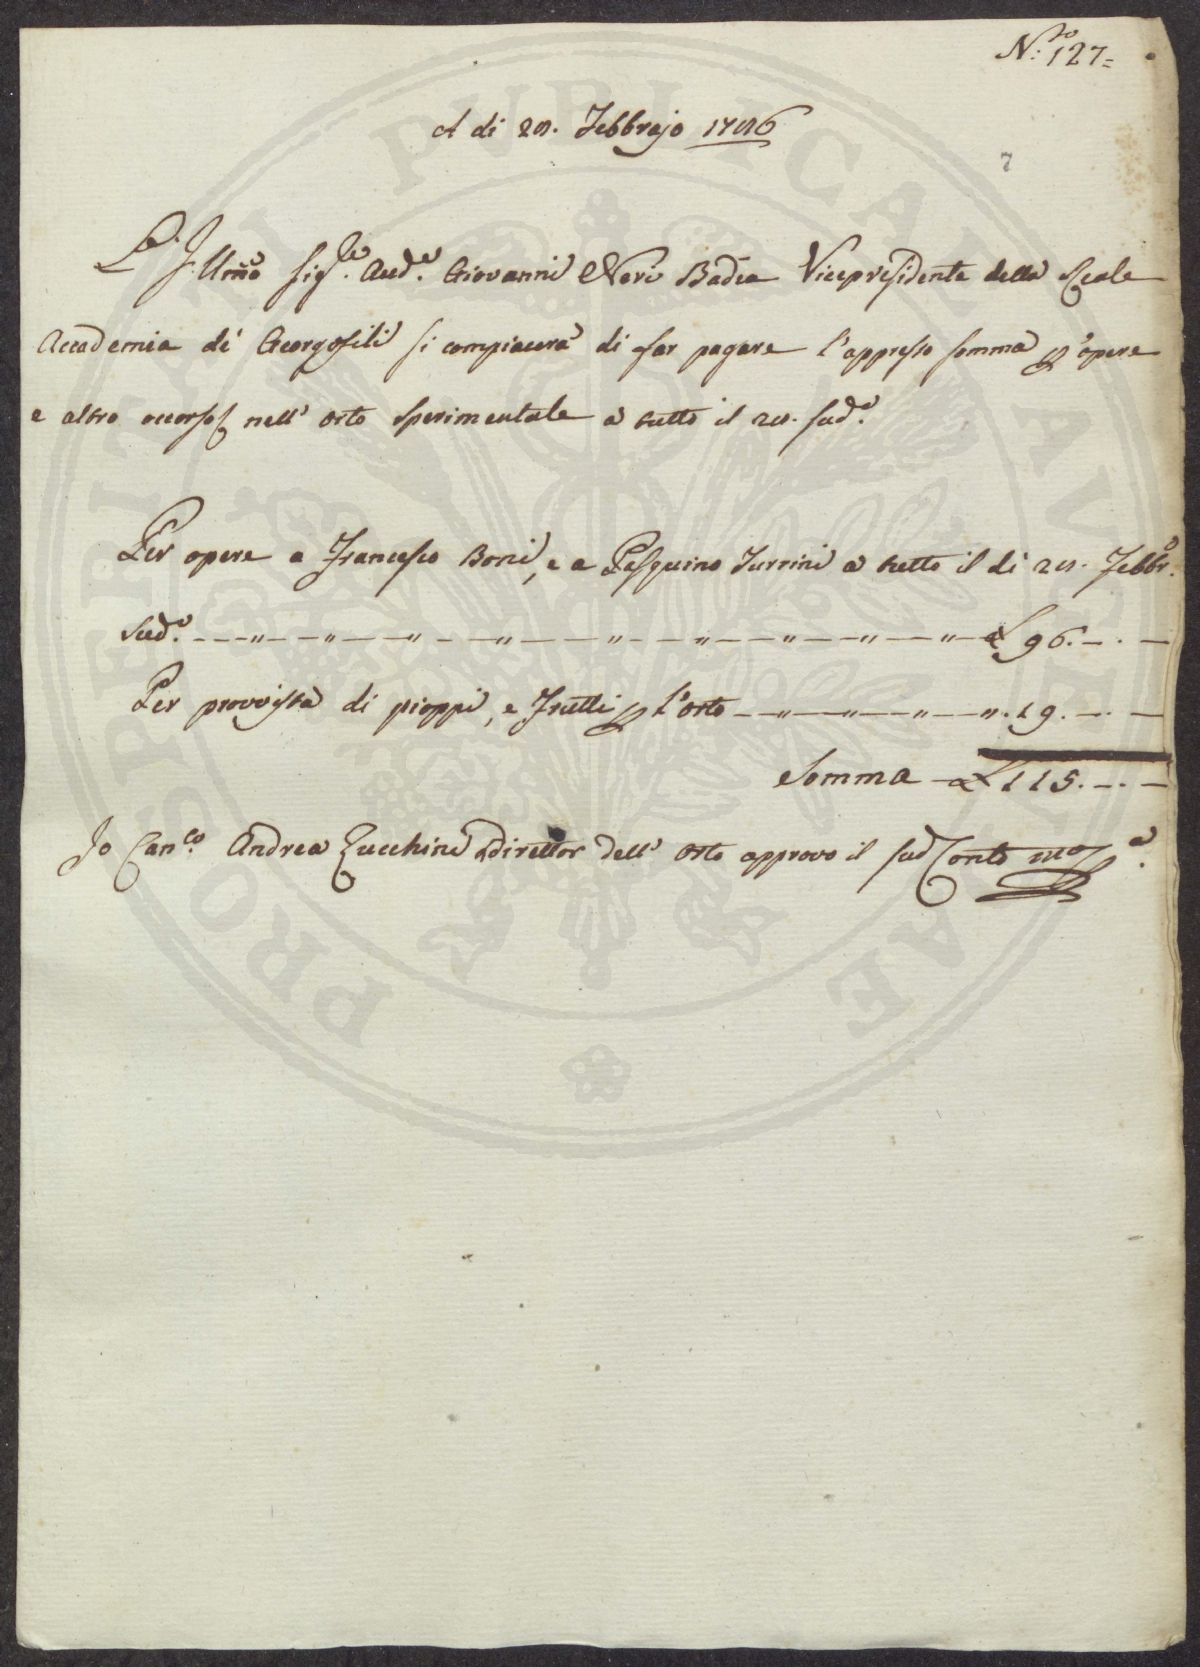 N:ro 127=
A di 28. Febbrajo 1786
7
L'Illmo Sig.re Aud.e Giovanni Neri Badia Vicepresidente della Reale
Accademia de' Georgofili si compiacerà di far pagare l'appresso somma p. opere
e altro occorso nell' Orto Sperimentale a tutto il 28. sud.o
Per opere a Francesco Boni, e a Pasquino Turrini a tutto il di 28. Febbr.o
Sud.o - - - " - - " - - " - - " - - " - - " - - " - - " - - " - £ 96. - . -
Per provvista di pioppi, e Frutti p. l'Orto - - " - - " - - " - - ". 19. - . -
Somma - £ 115. - . -
Io Can.co Andrea Zucchini Direttor dell' Orto approvo il sud. Conto mo. pa.
PROSPERITATI PUBLICAE AUGENDAE